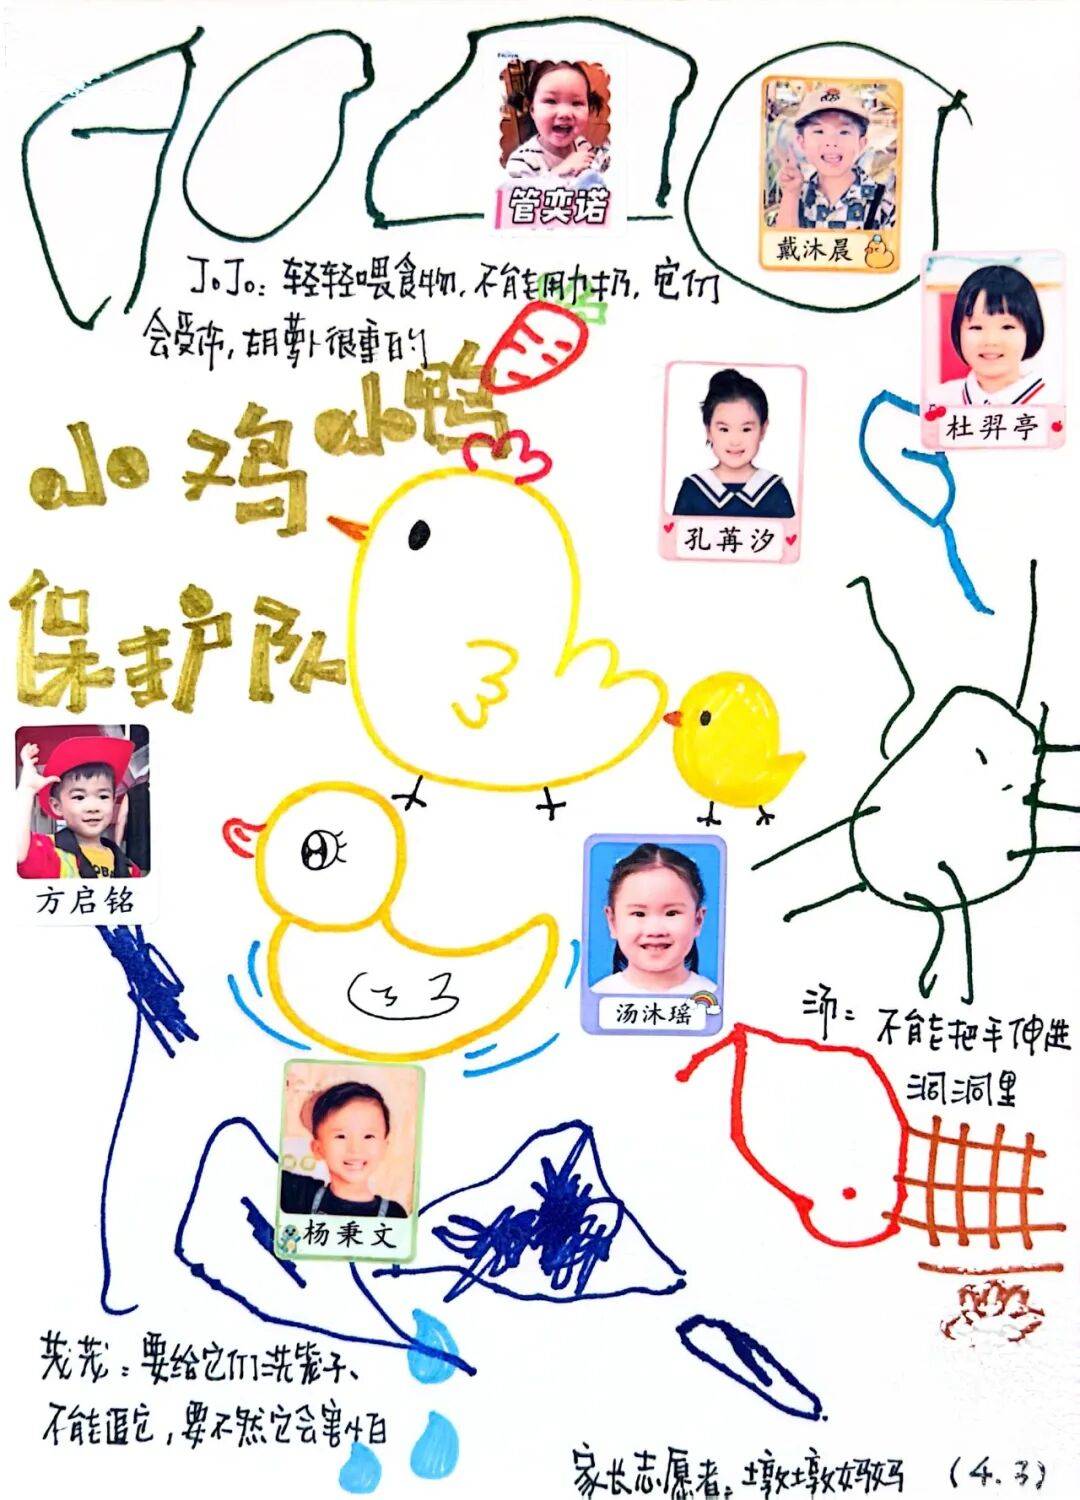 管奕诺
戴沐晨
JoJo：轻轻喂食物，不能用力扔，它们
会受伤，胡萝卜很重的
杜羿亭
小鸡小鸭
孔苒汐
保护队
方启铭
汤沐瑶
汤：不能把手伸进
洞洞里
杨秉文
茂茂：要给它们洗笼子、
不能逗它，要不然它会害怕
家长志愿者：墩墩妈妈 （4.3）